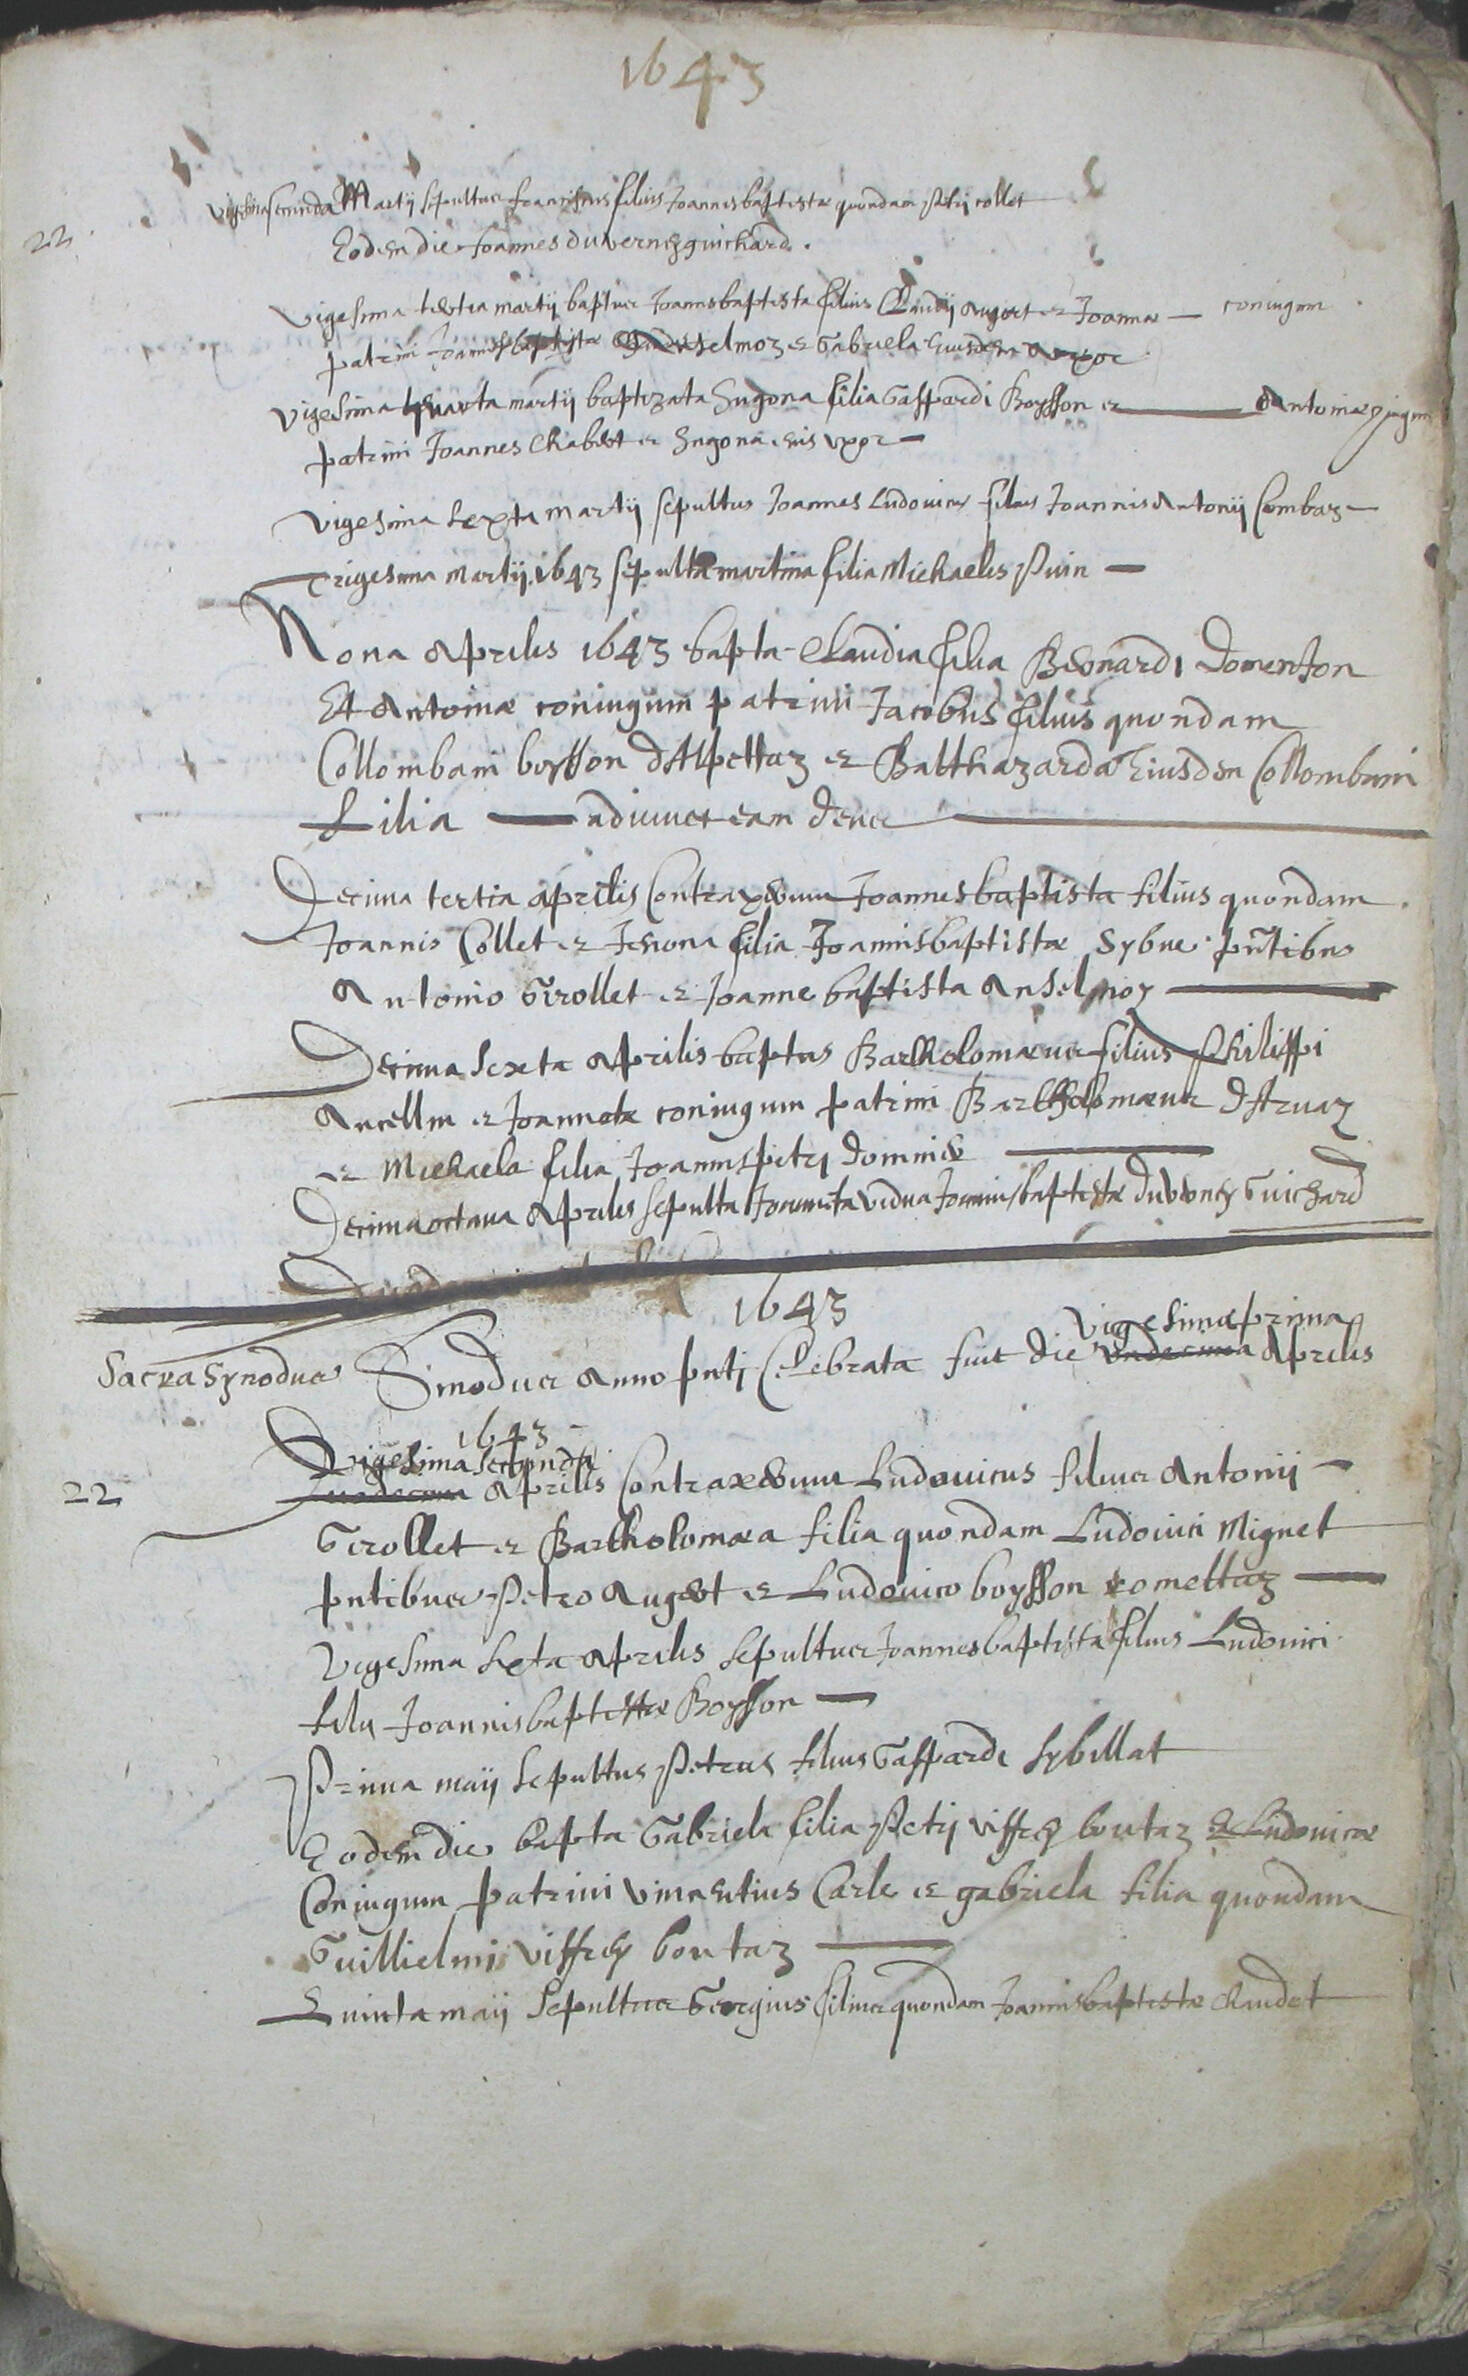 1643
Vigesima secunda Martij sepultus Joannes filius Joannisbaptistæ quondam Petrj collet
22.
Eodem die Joannes duverney guichard.
Vigesima tertia martij baptus Joannesbaptista filius Claudij Augert et Joannæ — coniugum
patrini Joannesbaptista Anselmoz et Gabriela Eiusdem uxor
Vigesima quarta martij baptizata Hugona filia Gaspardi Boysson et — Antoinæ jugum
patrini Joannes Chabert et Hugona eius uxor —
Vigesima Sexta martij sepultus Joannes Ludovicus filius Joannis Antonij Combaz —
Trigesima martij 1643 sepulta martina filia Michaelis Pvin —
Nona Aprilis 1643 bapta Claudia filia Bernardi Domenjon
Et Antoinæ coniugum patrini Jacobus filius quondam
Collombani boysson d'Alpettaz et Balthazarda Eiusdem Collombani
filia — adiuuet eam deus —
Decima tertia aprilis Contraxerunt Joannesbaptista filius quondam
Joannis Collet et Jenona filia Joannisbaptistæ Sybue pntibus
Antonio Girollet et Joanne baptista Anselmoz —
Decima sexta Aprilis baptus Bartholomæus filius Philippi
Ancellin et Joannetæ coniugum patrini Bartholomæus d'Aruaz
et Michaela filia Joannispetrj Domine —
Decima octaua Aprilis sepulta Joanneta vidua Joannisbaptistæ duverney Guichard
1643
Vigesimaprima
Sacra Synodus Sinodus Anno pntj Celebrata fuit die undecima Aprilis
1643
Vigesima secunda
22 Duodecima Aprilis Contraxerunt Ludouicus filius Antonij —
Girollet et Bartholomæa filia quondam Ludouici Mignet
pntibus Petro Augert et Ludouico boysson comettaz —
Vigesima sexta Aprilis sepultus Joannesbaptista filius Ludouici
filij Joannisbaptistæ Boysson —
Prima maij sepultus Petrus filius Gaspardi Sybillat
Eodem die bapta Gabriela filia Petrj viffrey boutaz et Ludouicæ
Coniugum patrini vincentius Carle et gabriela filia quondam
Guillielmi viffrey boutaz —
Quinta maij sepultus Georgius filius quondam Joannisbaptistæ Claudet